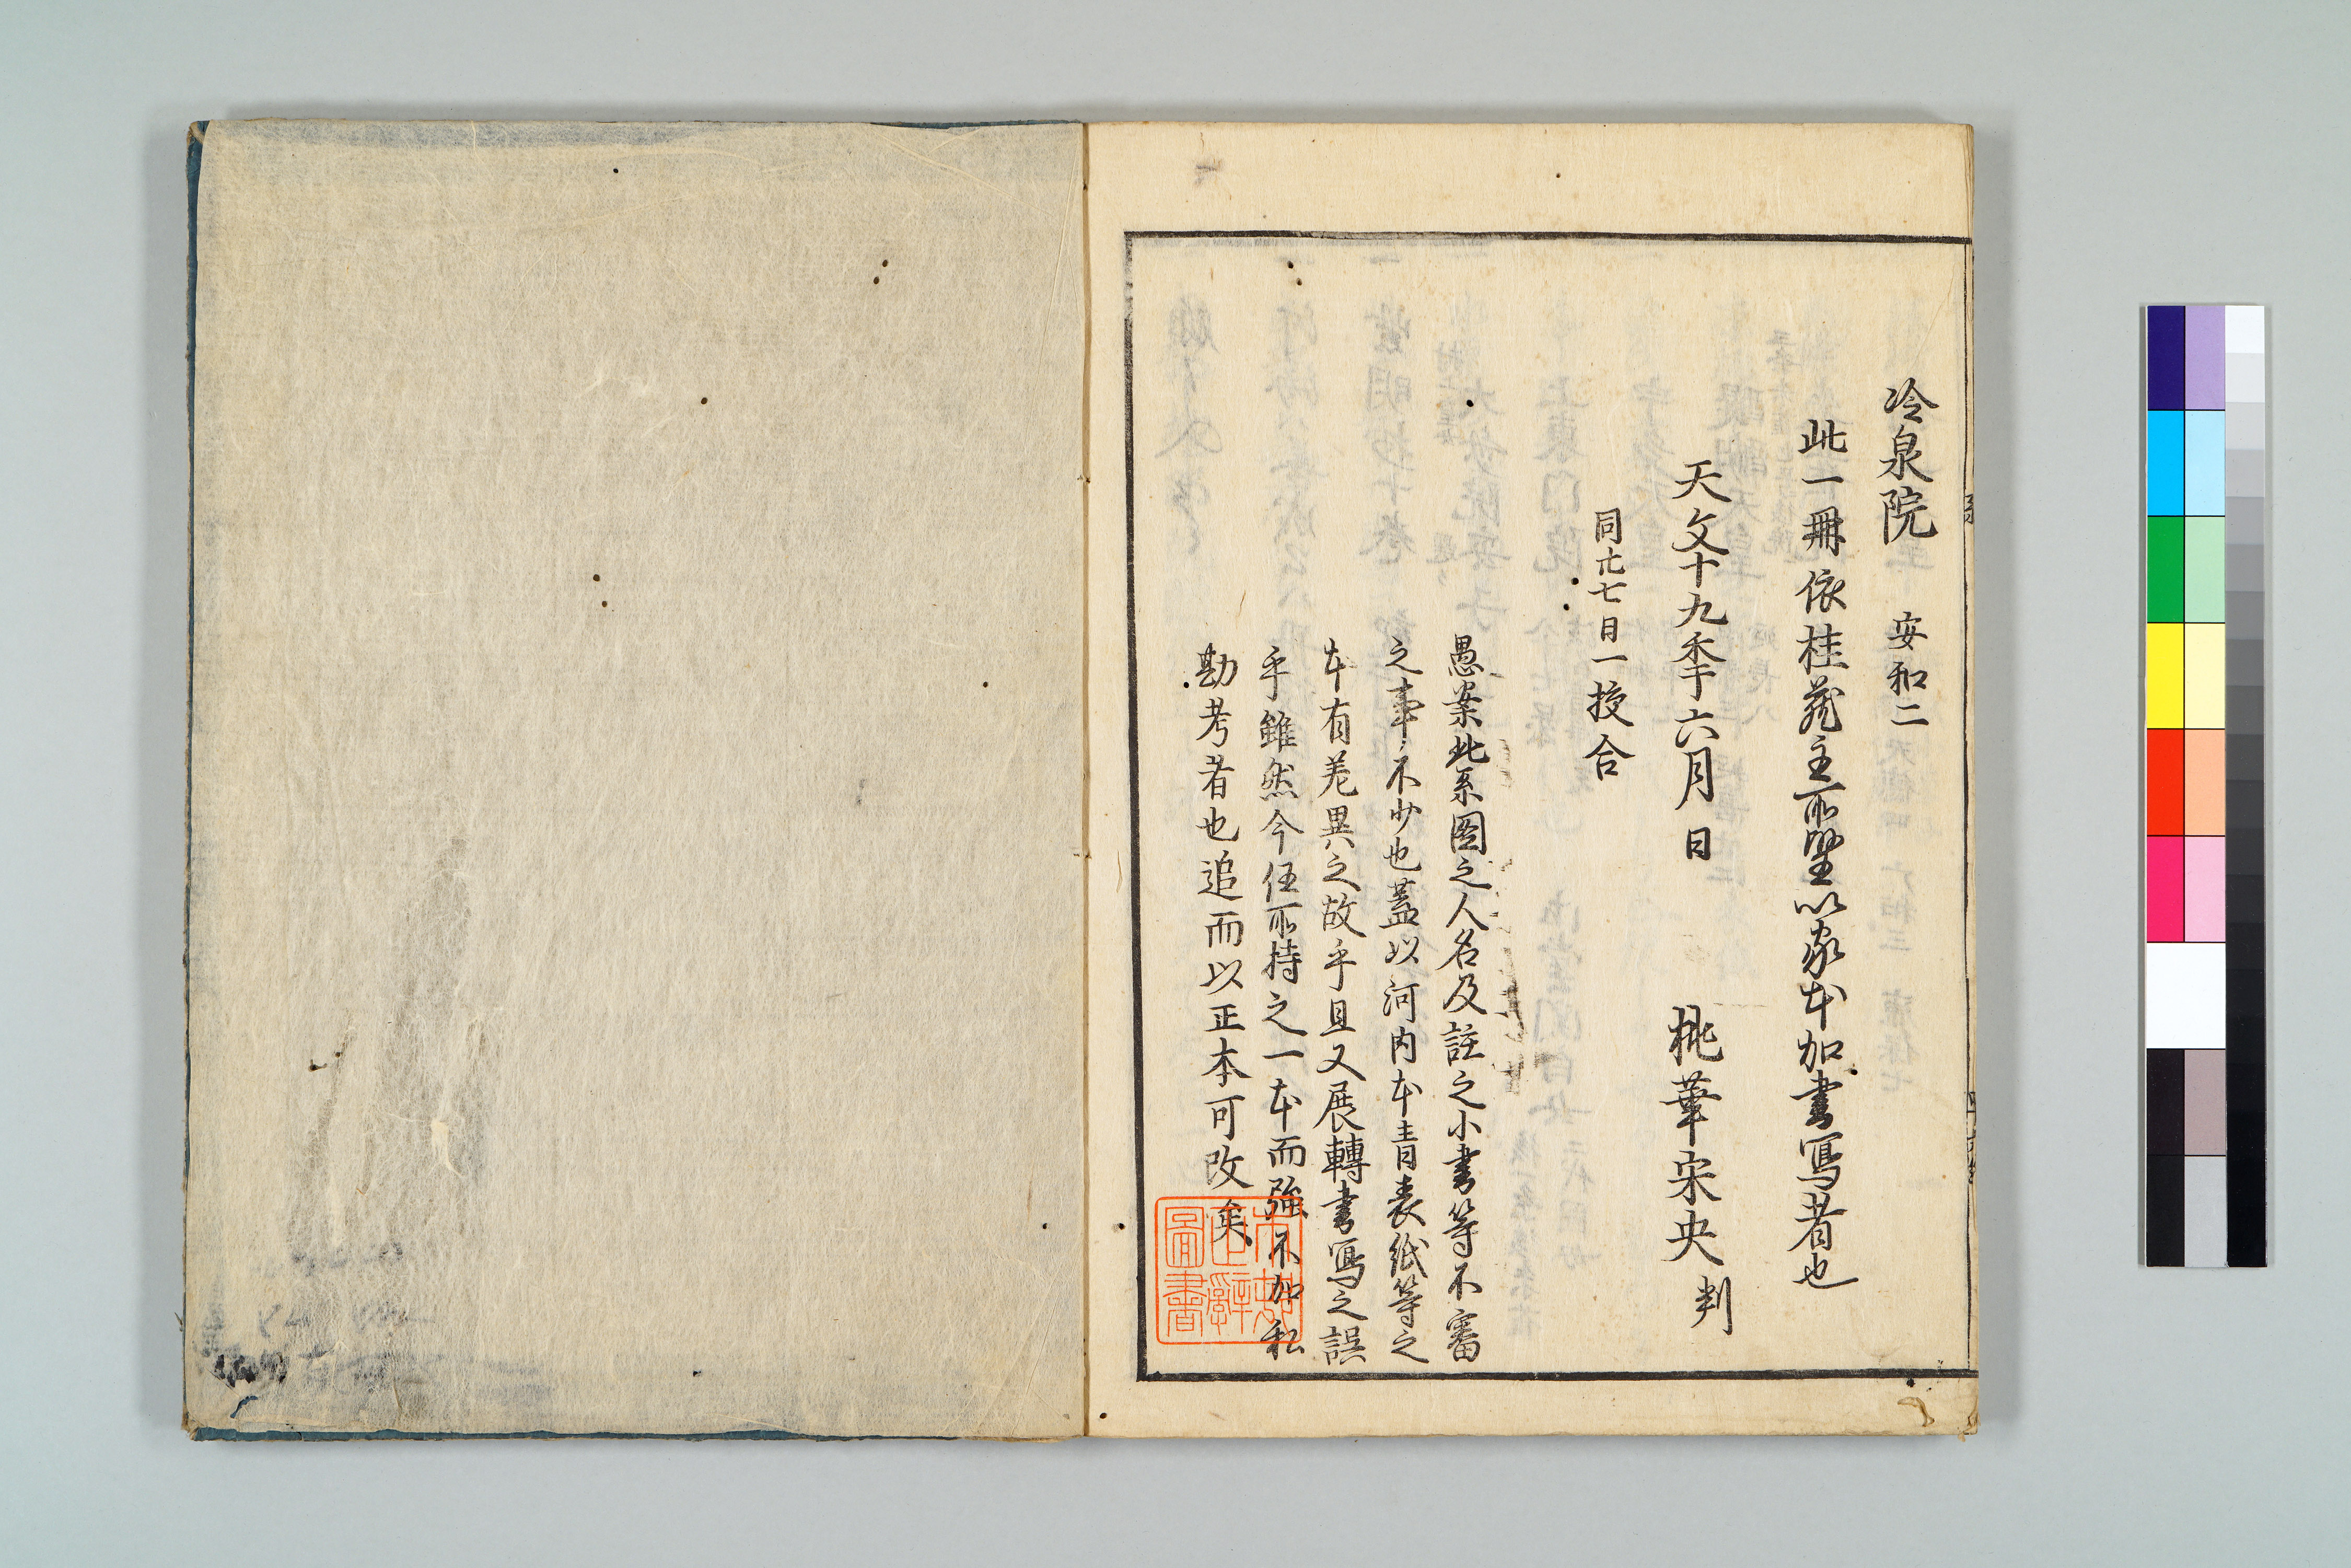 冷泉院　安和二
此一冊依桂蔵主所望以家本加書写者也
天文十九季六月日　桃華宋央判
同廿七日一挍合
愚案此系図之人名及註之小書等不審
之事不少也蓋以河内本青表紙等之
本有差異之故乎且又展轉書寫之誤
乎雖然今任所持之一本而強不加私
勘考者也追而以正本可改矣
圖書